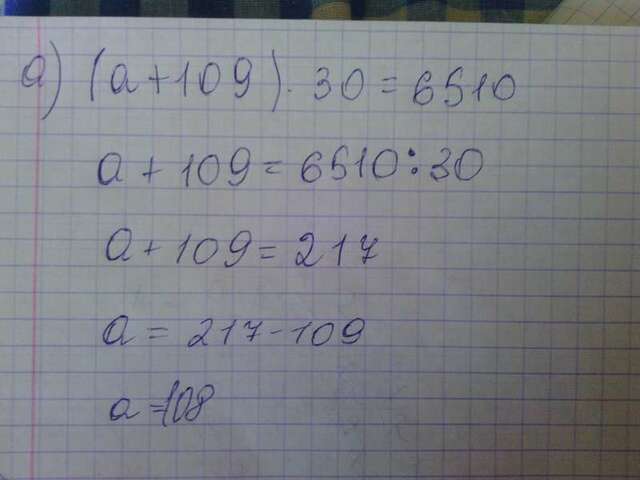 а) (a+109)·30=6510
a+109=6510:30
a+109=217
a=217-109
a=108